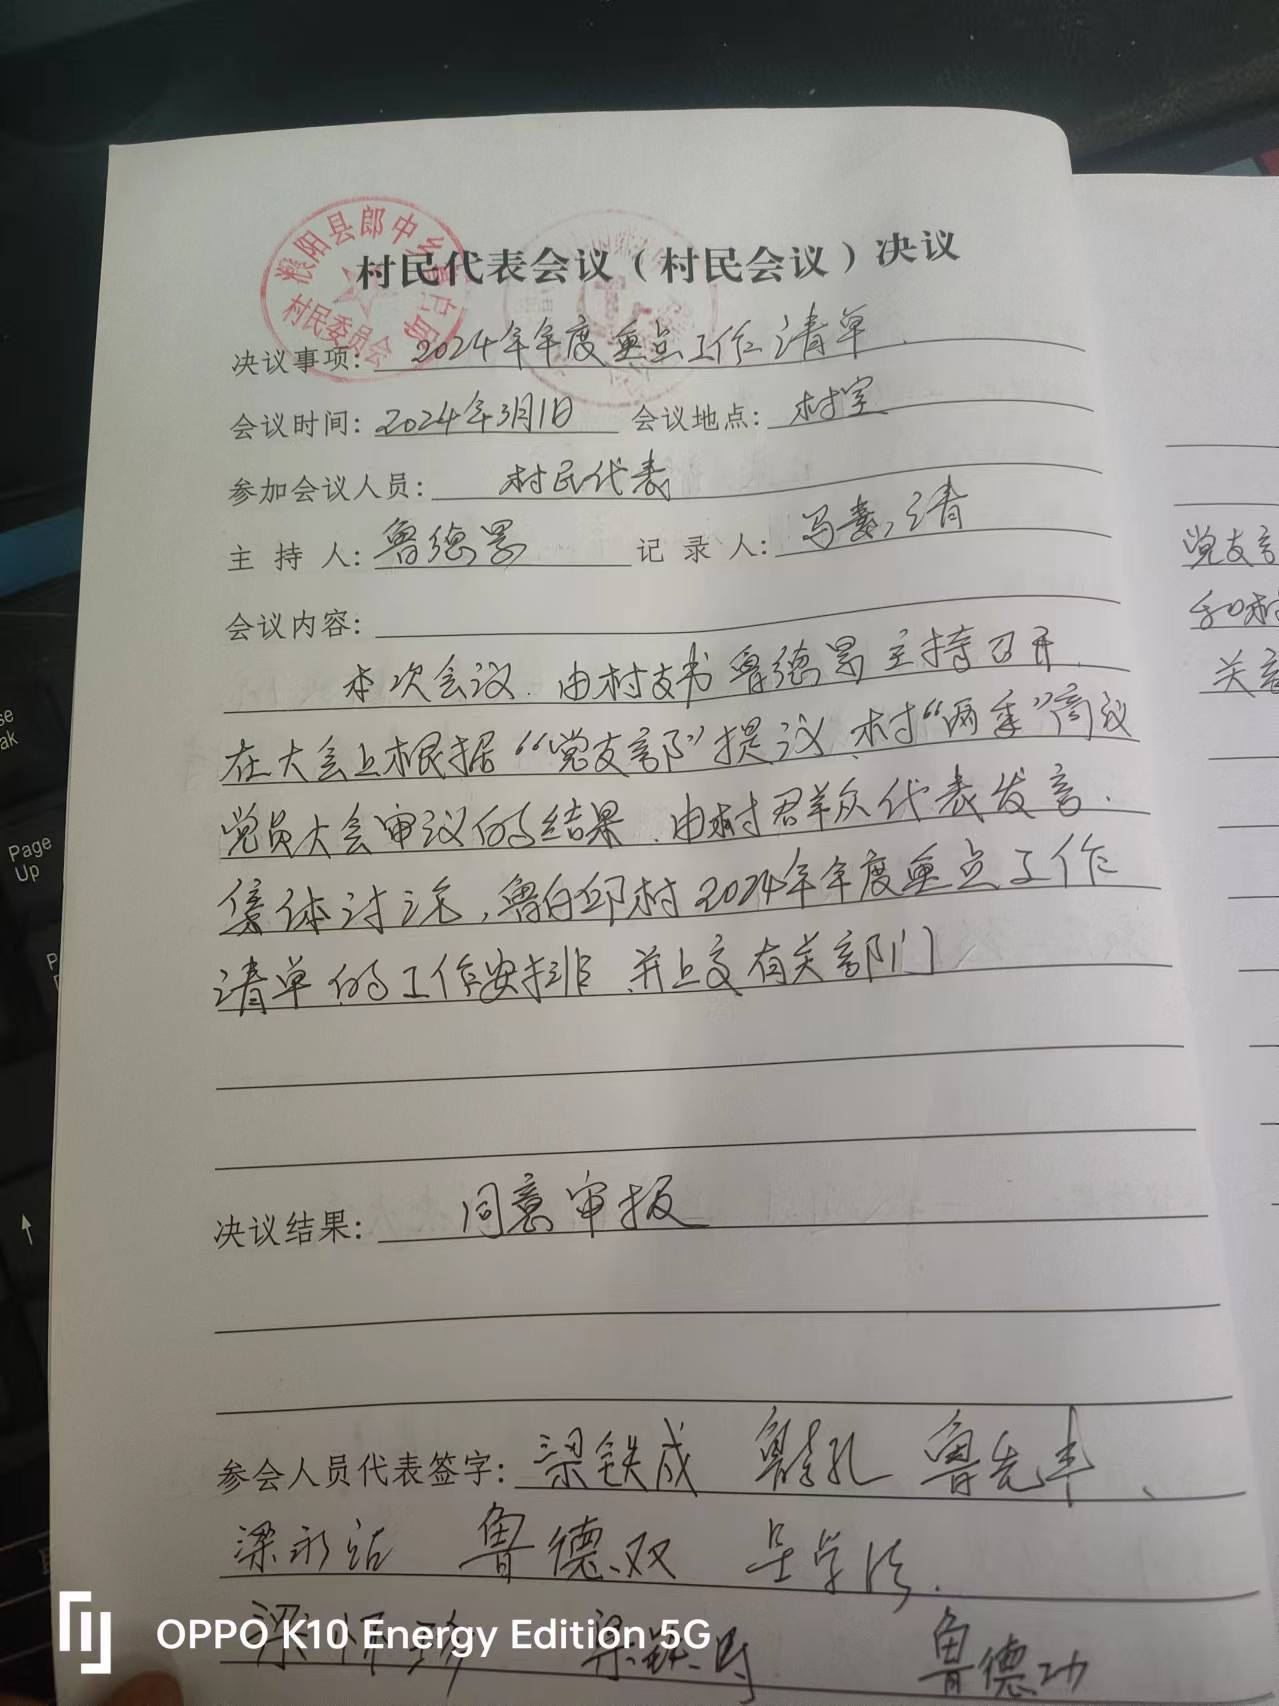 濮阳县郎中乡鲁白邱
村民委员会
村民代表会议（村民会议）决议
决议事项: 2024年年度重点工作清单.
会议时间: 2024年3月1日 会议地点: 村室
参加会议人员: 村民代表
主 持 人: 鲁德景 记 录 人: 马素清
会议内容:
本次会议.由村支书鲁德景主持召开.
在大会上根据“党支部”提议.村“两委”商议
党员大会审议的结果.由村群众代表发言.
集体讨论,鲁白邱村2024年年度重点工作
清单的工作安排.并上交有关部门
决议结果: 同意审报
参会人员代表签字: 梁铁成 鲁孔 鲁先丰、
梁永 鲁德双 吴学法.
梁 梁 鲁德功
党支部
和村
关
se
ak
Page
Up
P
↑
OPPO K10 Energy Edition 5G